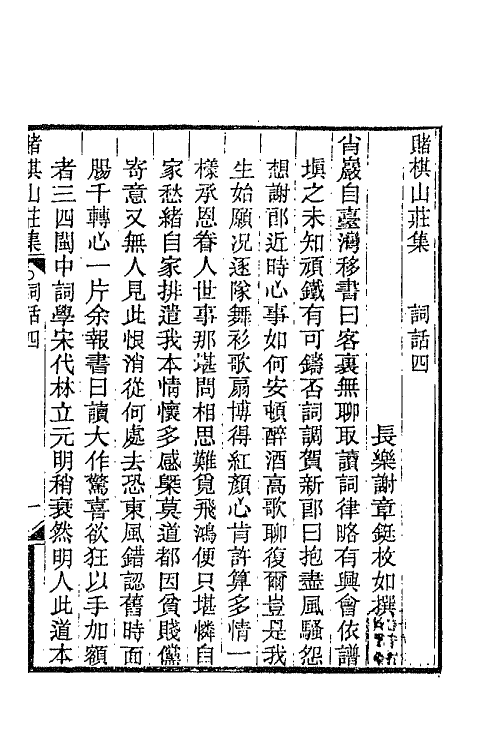 賭棋山莊集　詞話四
長樂謝章鋌枚如撰
省巖自臺灣移書曰客裏無聊取讀詞律略有興會依譜
塡之未知頑鐵有可鑄否詞調賀新郞曰抱盡風騷怨
想謝郞近時心事如何安頓醉酒高歌聊復爾豈是我
生始願况逐隊舞衫歌扇博得紅顏心肯許算多情一
樣承恩眷人世事那堪問相思難覓飛鴻便只堪憐自
家愁緒自家排遣我本情懷多感槩莫道都因貧賤儻
寄意又無人見此恨消從何處去恐東風錯認舊時面
腸千轉心一片余報書曰讀大作驚喜欲狂以手加額
者三四閩中詞學宋代林立元明稍衰然明人此道本
賭棋山莊集　詞話四　一